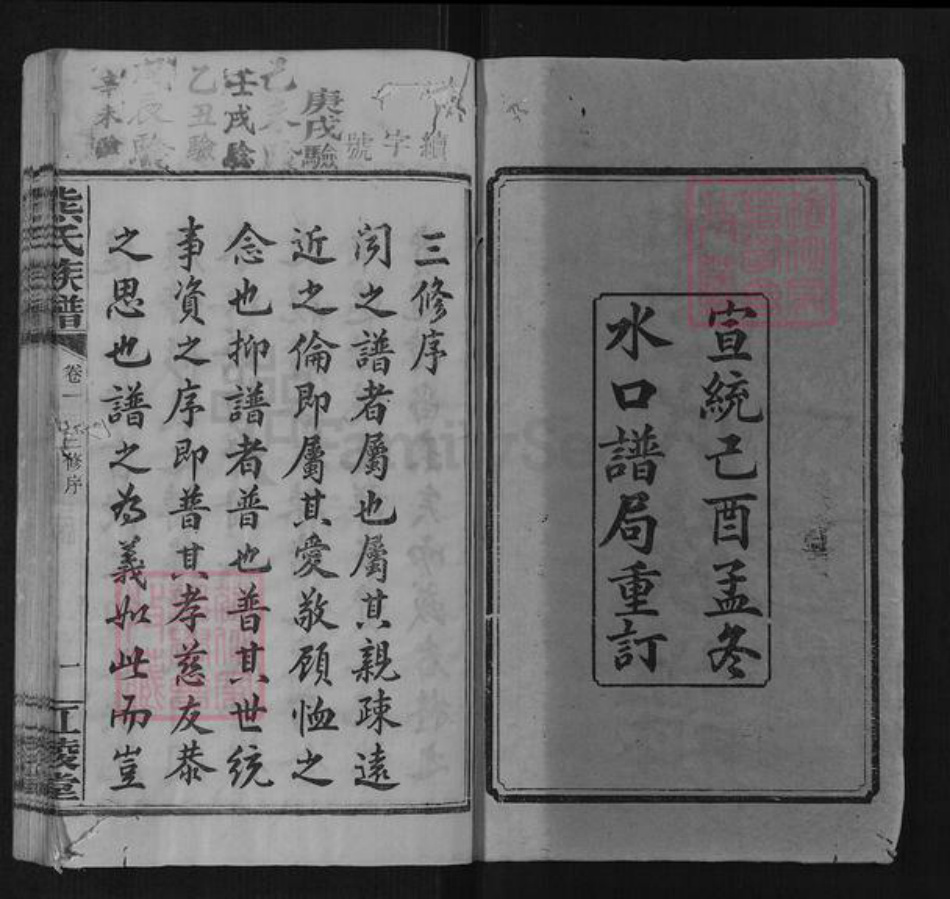 宣統己酉孟冬
水口譜局重訂
續字號
庚戌驗
壬戌驗
乙丑驗
辛未驗
三修序
閱之譜者屬也屬其親疎遠
近之倫即屬其愛敬顧恤之
念也抑譜者普也普其世統
事資之序即普其孝慈友恭
之思也譜之為義如此而豈
氏族譜
卷一
三修序
一
江陵堂